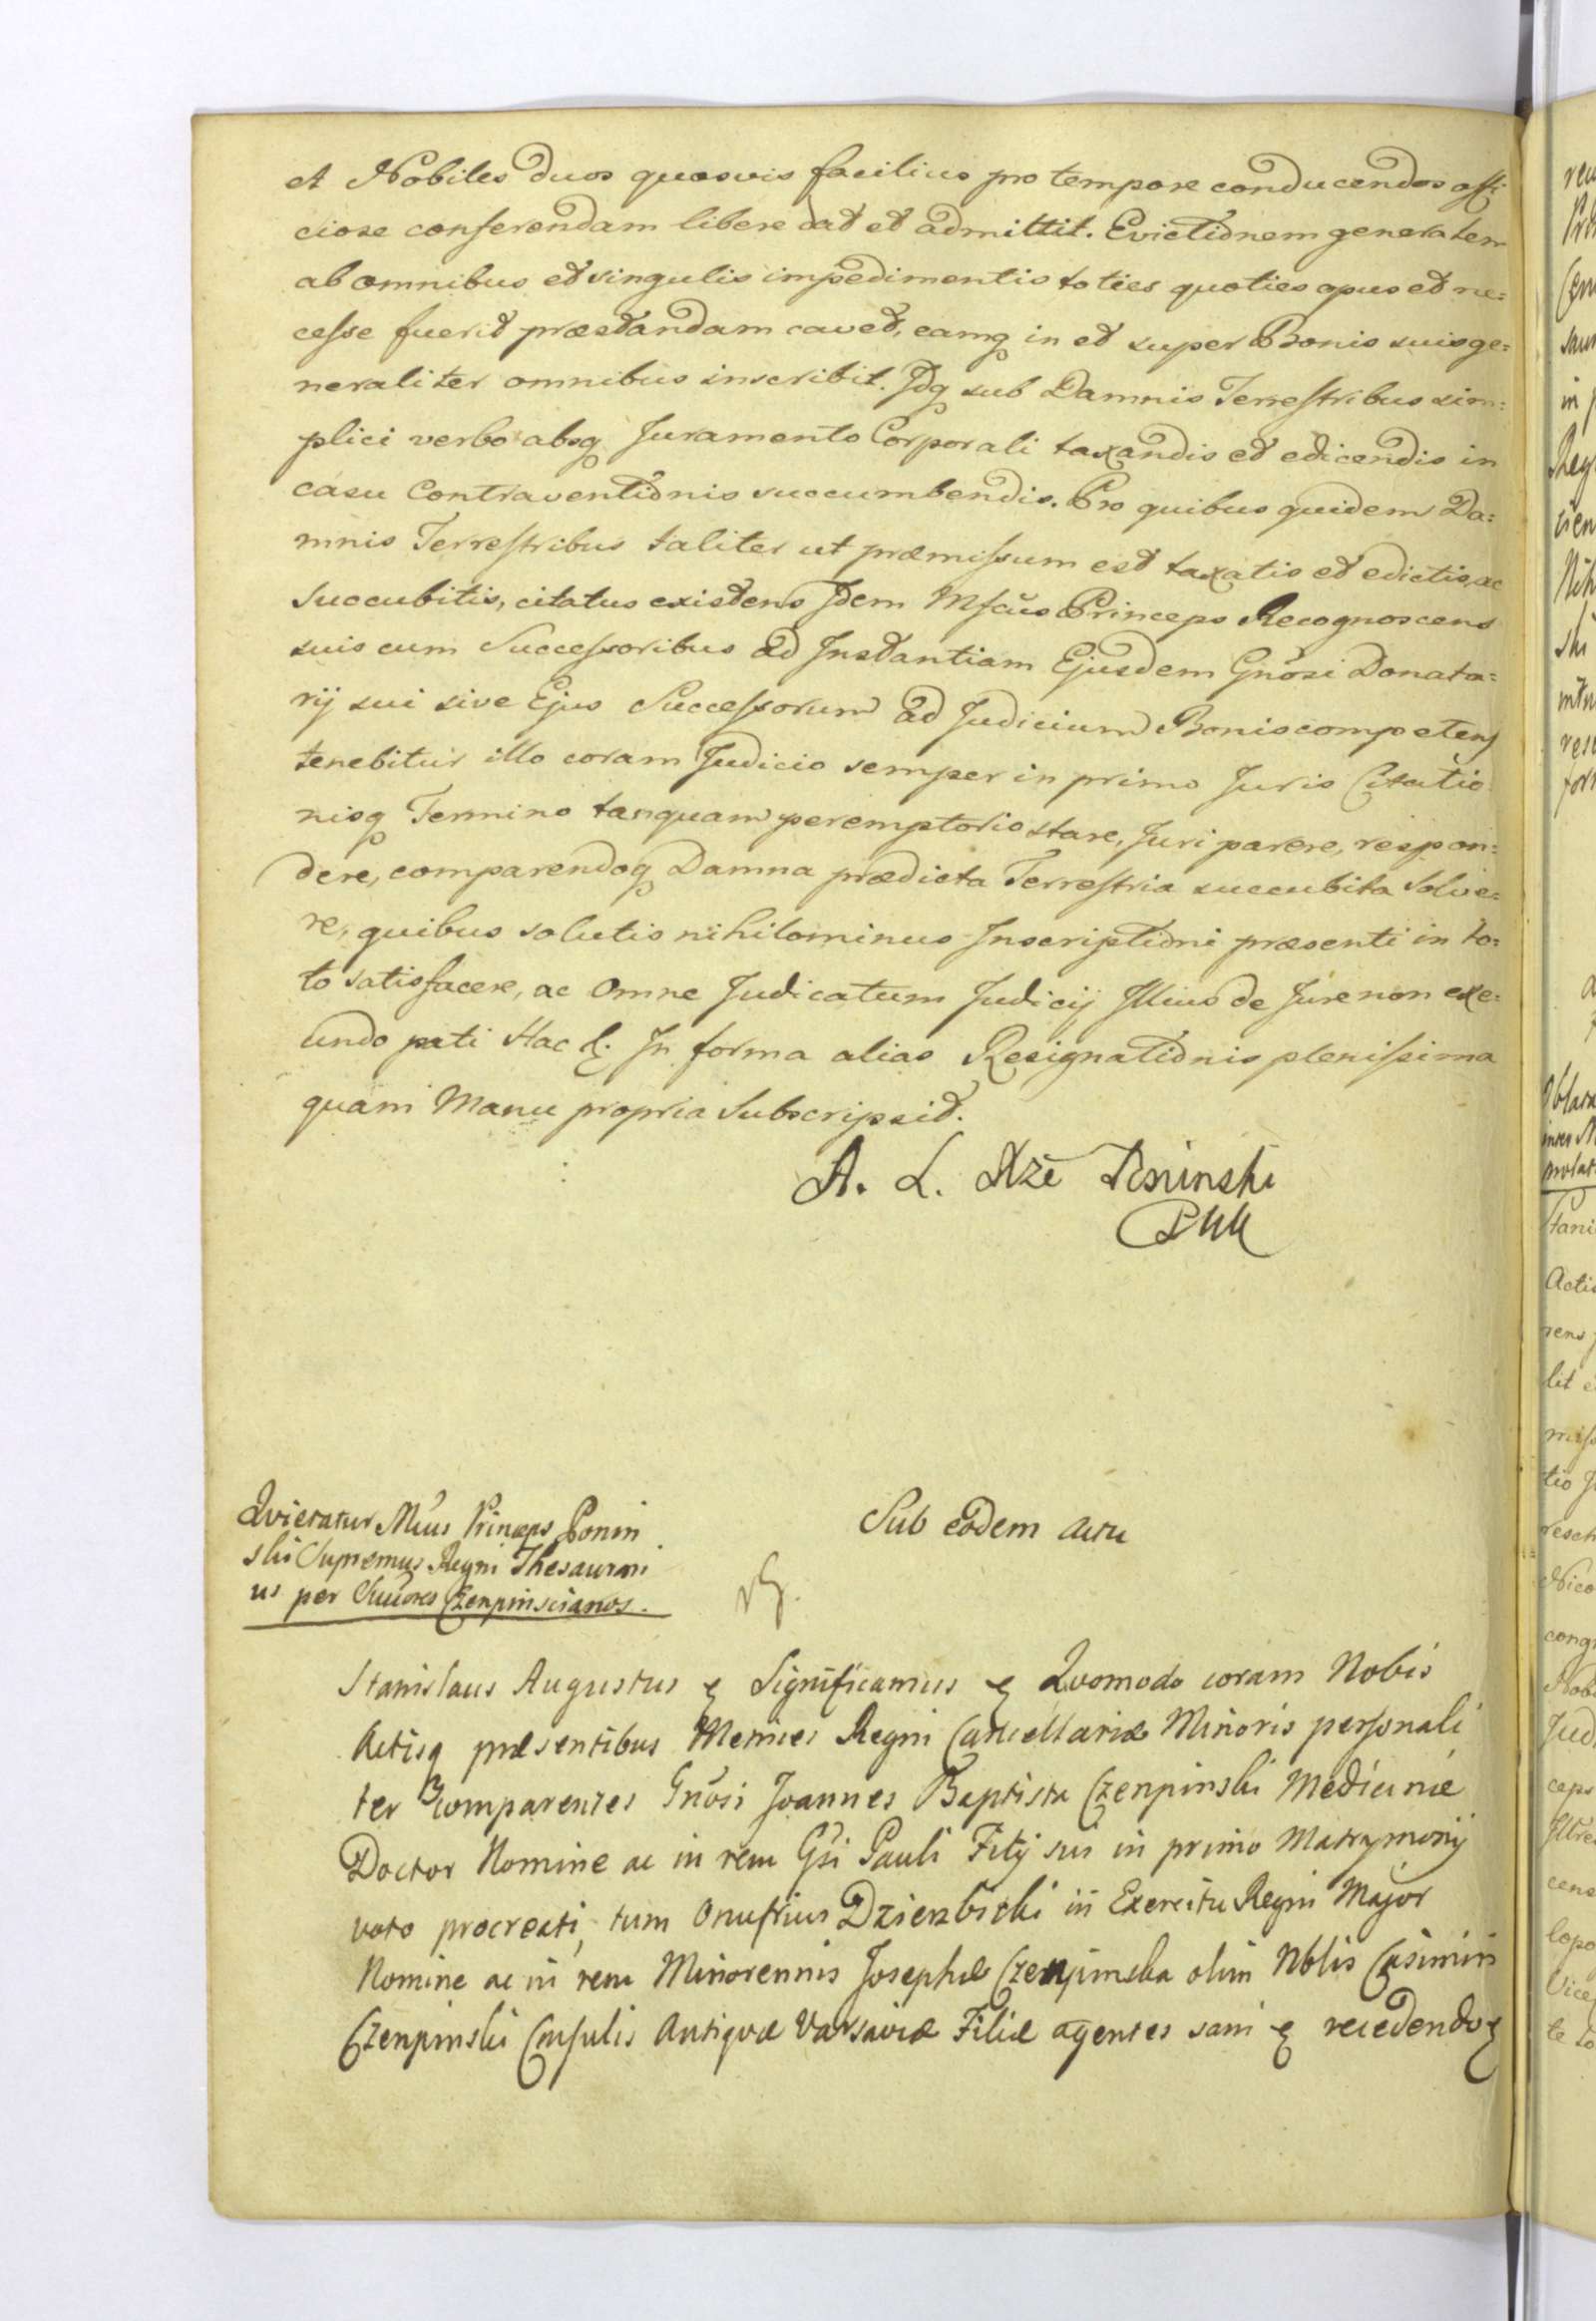 et Nobiles duos quosvis facilius pro tempore conducendos offi:
ciose conferendam libere dat et admittit. Evictionem generalem
ab omnibus et singulis impedimentis toties quoties opus et ne:
cesse fuerit præstandam cavet, eamq in et super Bonis suis ge:
neraliter omnibus inscribit. Idq sub Damnis Terrestribus sim:
plici verbo absq Juramento Corporali taxandis et edicendis in
casu Contraventionis succumbendis. Pro quibus quidem Da:
mnis Terrestribus taliter ut præmissum est taxatis et edictis, ac
succubitis, citatus existens Idem Mfcus Princeps Recognoscens
suis cum Successoribus ad Instantiam Ejusdem Gnosi Donata:
rij sui sive Ejus Successorum ad Judicium Bonis competens
tenebitur illo coram Judicio semper in primo Juris Citatio
nisq Termino tanquam peremptorio stare, Juri parere, respon:
dere, comparendoq Damna prædicta Terrestria succubita solve:
re, quibus solutis nihilominus Inscriptioni præsenti in to:
to satisfacere, ac Omne Judicatum Judicij Illius de Jure non exe:
undo pati Hac &. In forma alias Resignationis plenissima
quam Manu propria Subscripsit.
A. L. Xże Poninski
PWK
Quietatur Mcus Princeps Ponin
ski Supremus Regni Thesaurari
us per Succres Czenpinscianos.
Sub eodem actu
Stanislaus Augustus & Significamus & Quomodo coram Nobis
Actisq præsentibus Metrices Regni Cancellariæ Minoris personali
ter comparentes Gnosi Joannes Baptista Czenpinski Medicinæ
Doctor Nomine ac in rem Gsi Pauli Filij sui in primo Matrymonij
voto procreati, tum Onufrius Dzierzbicki in Exercitu Regni Major
Nomine ac in rem Minorennis Josephæ Czenpinska olim Nblis Casimiri
Czenpinski Consulis Antiquæ Varsaviæ Filiæ agentes sani & recedendo &